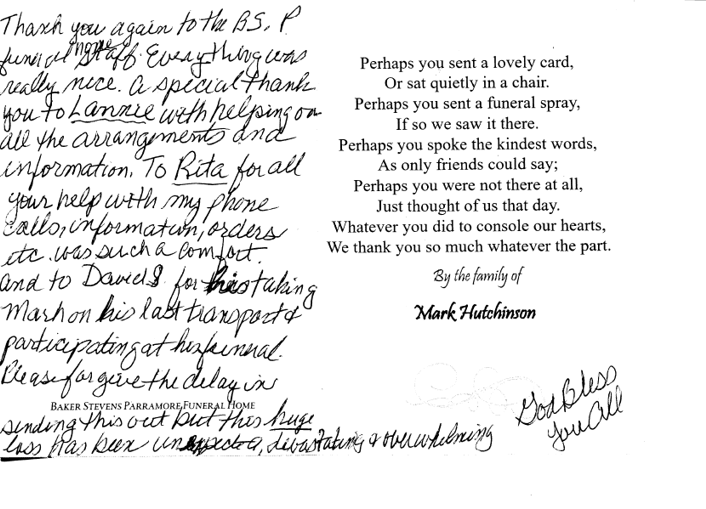 Thank you again to the B.S.P
funeral home staff. Everything was
really nice. A special thank
you to Lannie with helping on
all the arrangements and
information. To Rita for all
your help with my phone
calls, information, orders
etc. was such a comfort.
and to David S for taking
Mark on his last transport &
participating at his funeral.
Please forgive the delay in
BAKER STEVENS PARRAMORE FUNERAL HOME
sending this out but this huge
loss has been unexpected, devastating & overwhelming
Perhaps you sent a lovely card,
Or sat quietly in a chair.
Perhaps you sent a funeral spray,
If so we saw it there.
Perhaps you spoke the kindest words,
As only friends could say;
Perhaps you were not there at all,
Just thought of us that day.
Whatever you did to console our hearts,
We thank you so much whatever the part.
By the family of
Mark Hutchinson
God Bless
You All